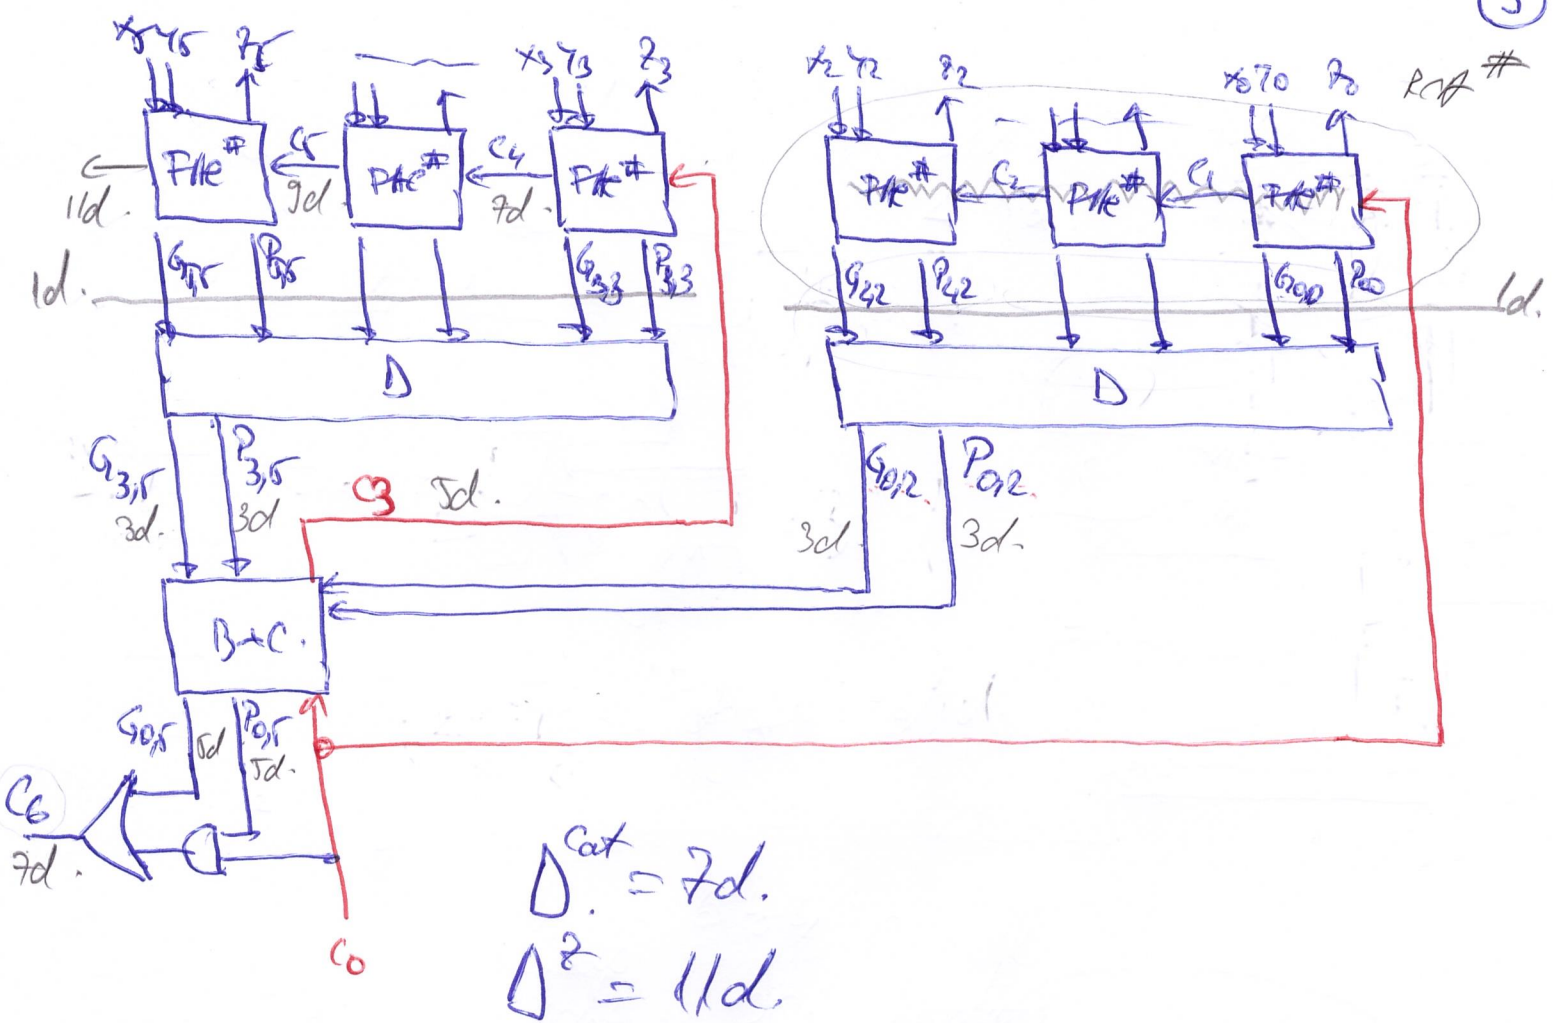 3
X5 Y5 Z5 X3 Y3 Z3 X2 Y2 Z2 X0 Y0 Z0
FAe# C5 FAe# C4 FAe# FAe# C2 FAe# C1 FAe#
11d. 9d. 7d.
G5,5 P5,5 G3,3 P3,3 G2,2 P2,2 G0,0 P0,0
1d. 1d.
D D
G3,5 P3,5 G0,2 P0,2
3d. 3d C3 5d. 3d. 3d.
B+C.
G0,5 5d P0,5 5d.
C6
7d.
C0
Δcat = 7d.
Δz = 11d.